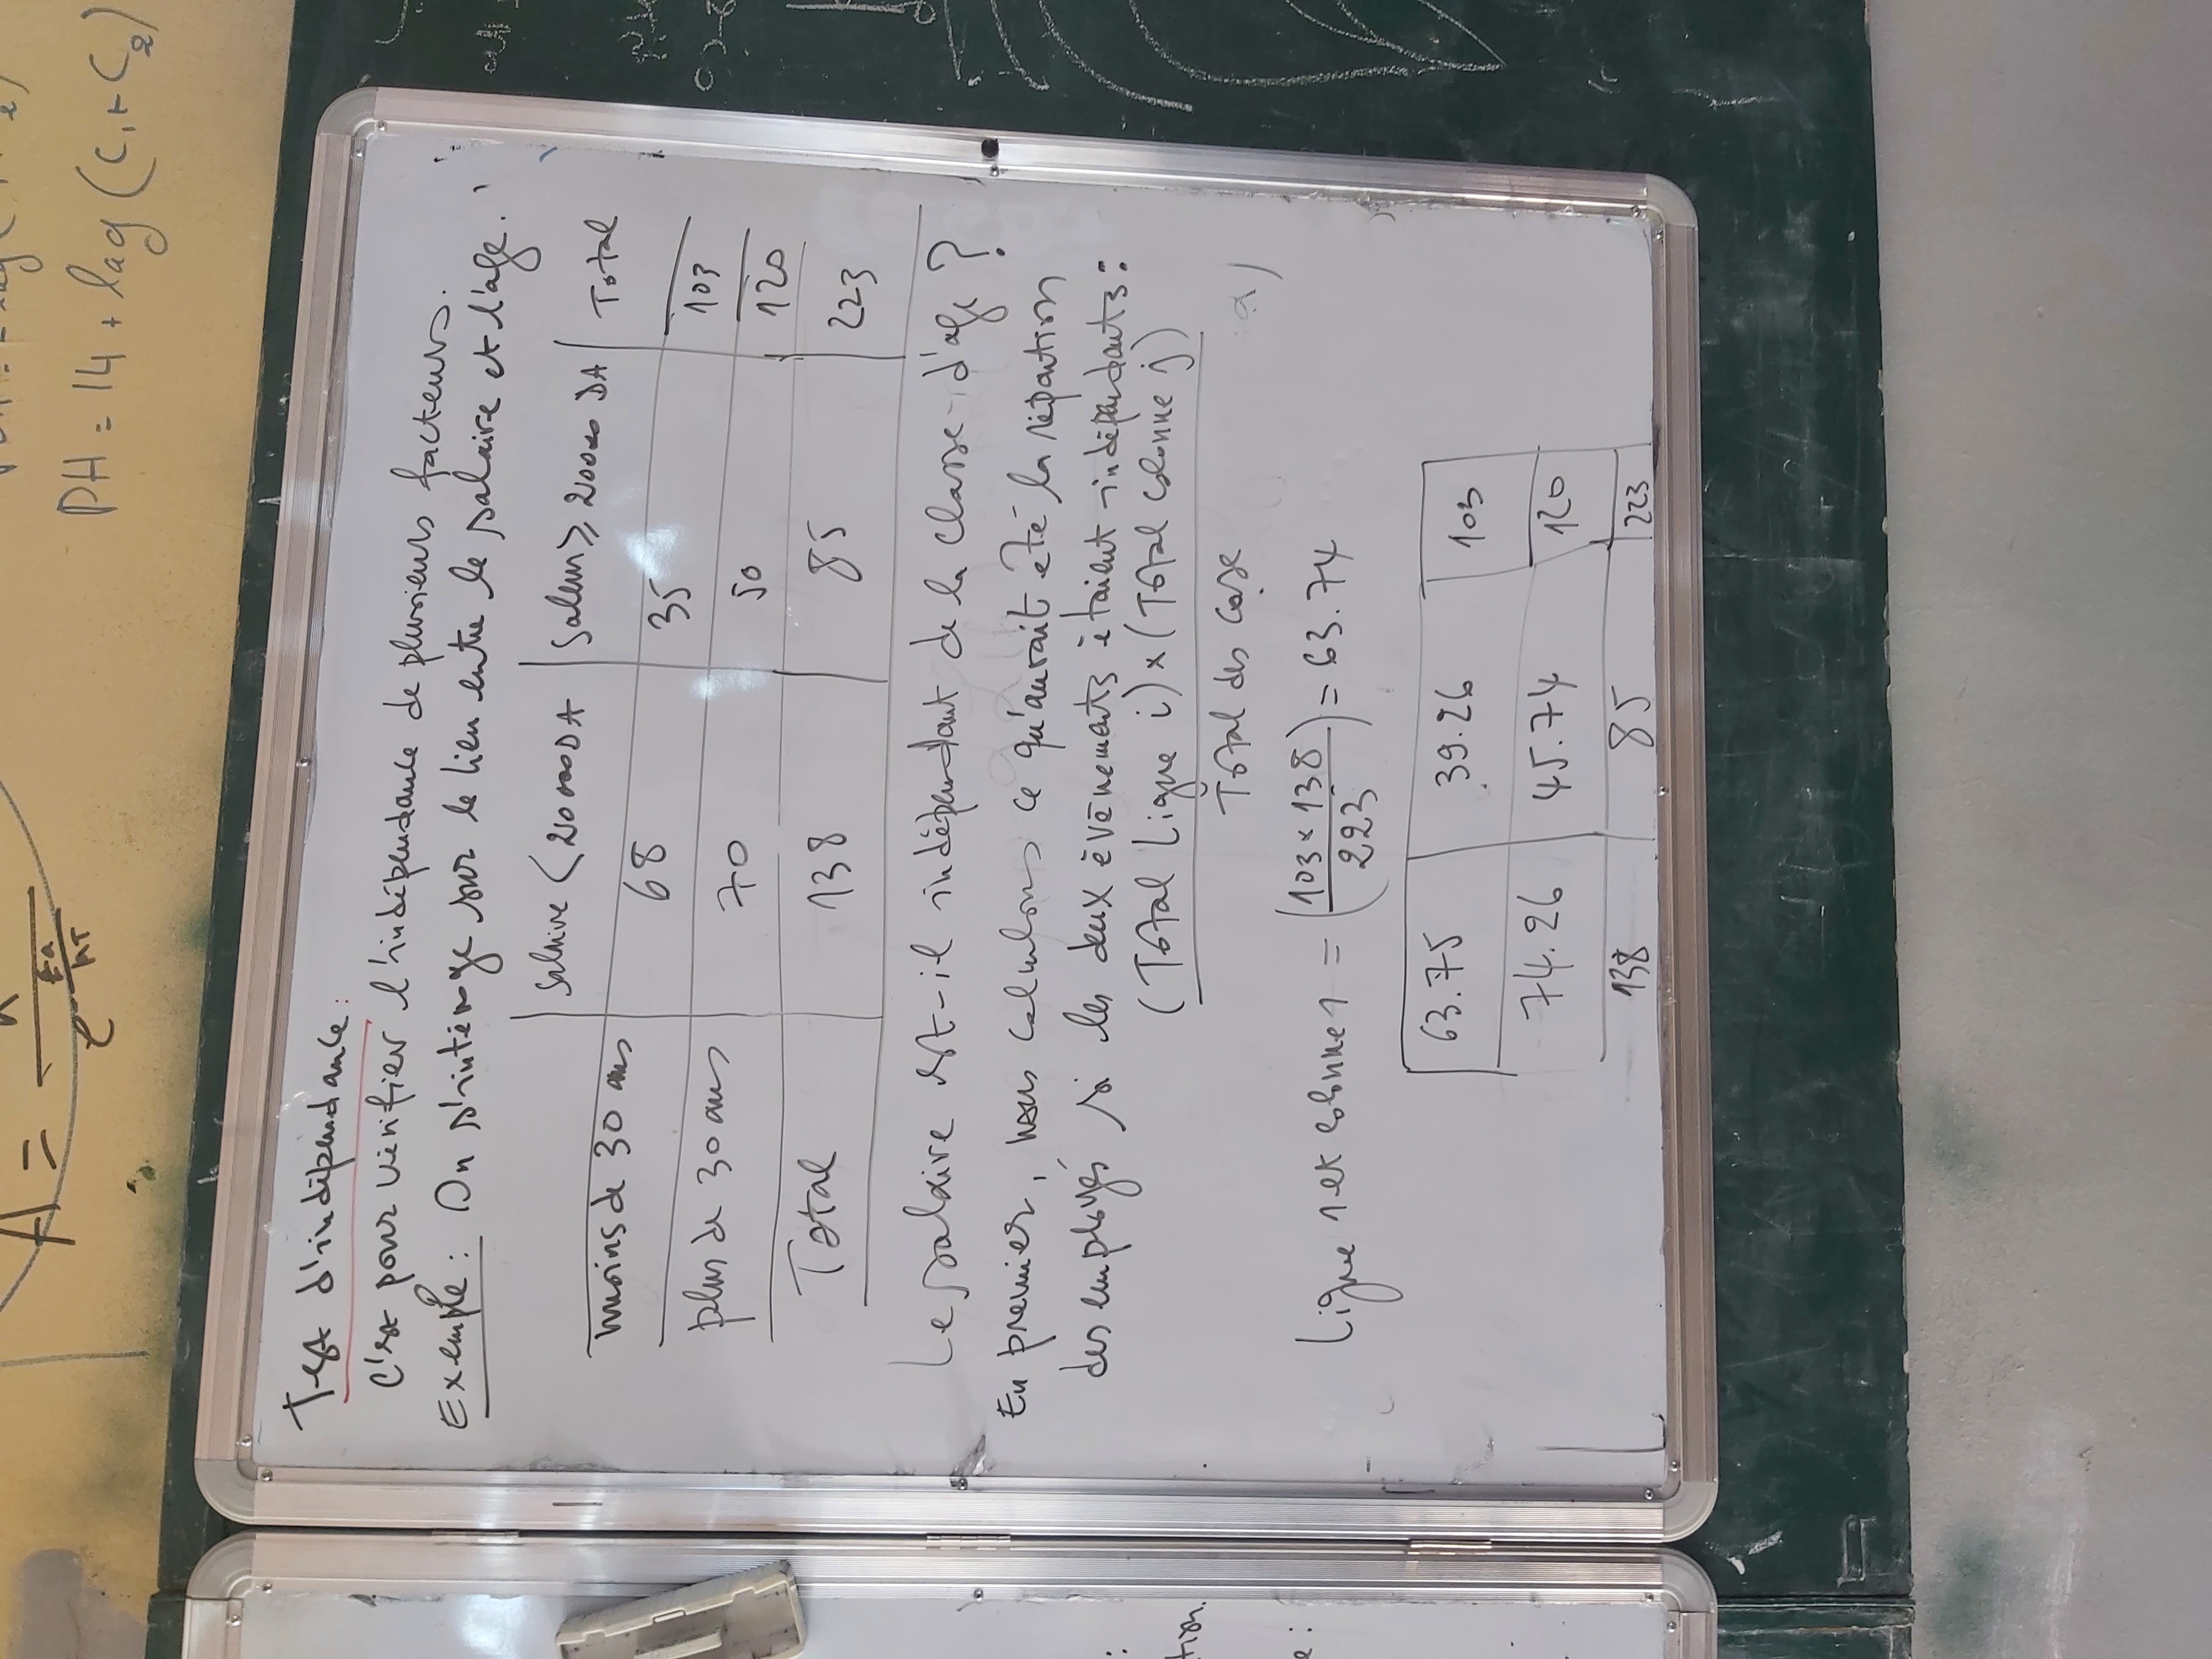 A =
e^-Ea/RT
PH = 14 + log (C1 + C2)
Test d'indépendance :
C'est pour vérifier l'indépendance de plusieurs facteurs.
Exemple : On s'intéroge sur le lien entre le salaire et l'age.
Salaire < 20000 DA
≥ 20000 DA
Total
moins de 30 ans 68 35 103
plus de 30 ans 70 50 120
Total 138 85 223
Le salaire est-il indépendant de la classe d'age ?
En premier, nous calculons ce qu'aurait été la répartion
des employés si les deux évènements étaient indépendants :
(Total Ligne i) x (Total colonne j)
Total des case
Ligne 1 et colonne 1 = (103 x 138 / 223) = 63.74
63.75 39.26 103
74.26 45.74 120
138 85 223
tion.
e :